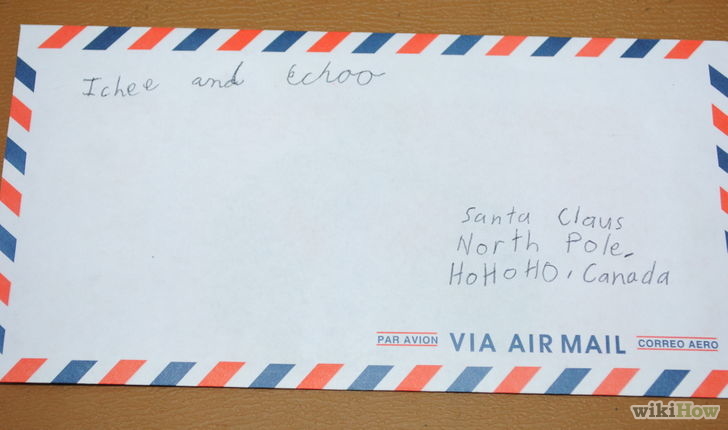 Ichee and Echoo
Santa Claus
North Pole.
HoHoHO, Canada
PAR AVION VIA AIR MAIL CORREO AERO
wikiHow